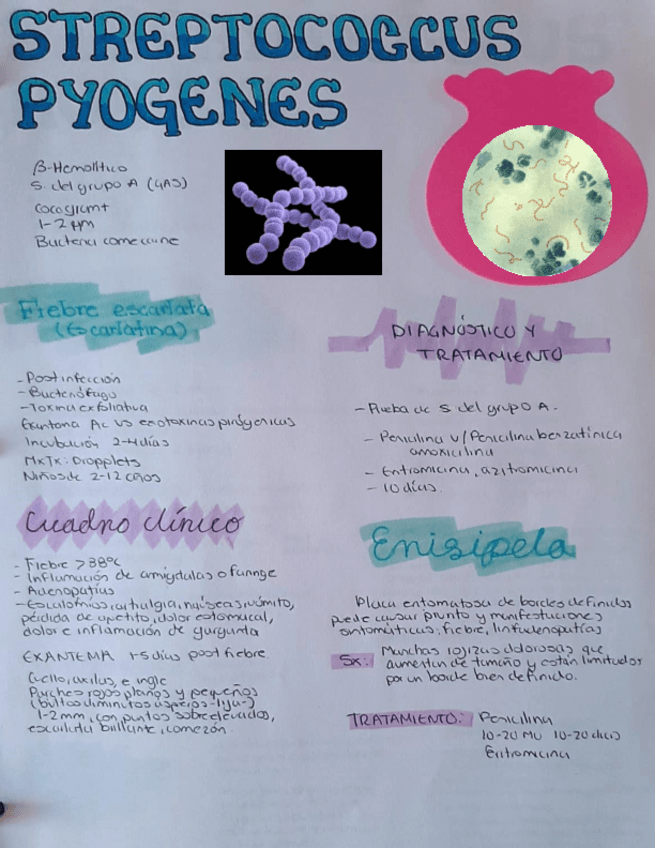 STREPTOCOCCUS
PYOGENES
β-Hemolítico
S. del grupo A (GAS)
Coco gram+
1-2 μm
Bacteria come carne
Fiebre escarlata
(Escarlatina)
- Post infección
- Bacteriófago
- Toxina exfoliativa
Exantema Ac vs exotoxinas pirógenicas
Incubación 2-4 días
MxTx: Dropplets
Niños de 2-12 años
Cuadro clínico
- Fiebre >38°C
- Inflamación de amígdalas o faringe
- Adenopatías
- Escalofríos, artralgia, náuseas, vómito,
pérdida de apetito, dolor estomacal,
dolor e inflamación de garganta
EXANTEMA 1-5 días post fiebre.
Cuello, axilas, e ingle
Parches rojos planos y pequeños
(bultos diminutos ásperos - lija-)
1-2 mm, con puntos sobre elevados,
escarlata brillante, comezón.
DIAGNÓSTICO Y
TRATAMIENTO
- Prueba de S del grupo A.
- Penicilina V/Penicilina benzatínica
amoxicilina
- Eritromicina, azitromicina
- 10 días.
Erisipela
Placa eritematosa de bordes definidos
puede causar prurito y manifestaciones
sintomáticas, fiebre, linfadenopatías
Sx: Manchas rojizas dolorosas que
aumentan de tamaño y están limitados
por un borde bien definido.
TRATAMIENTO: Penicilina
10-20 MU 10-20 días
Eritromicina